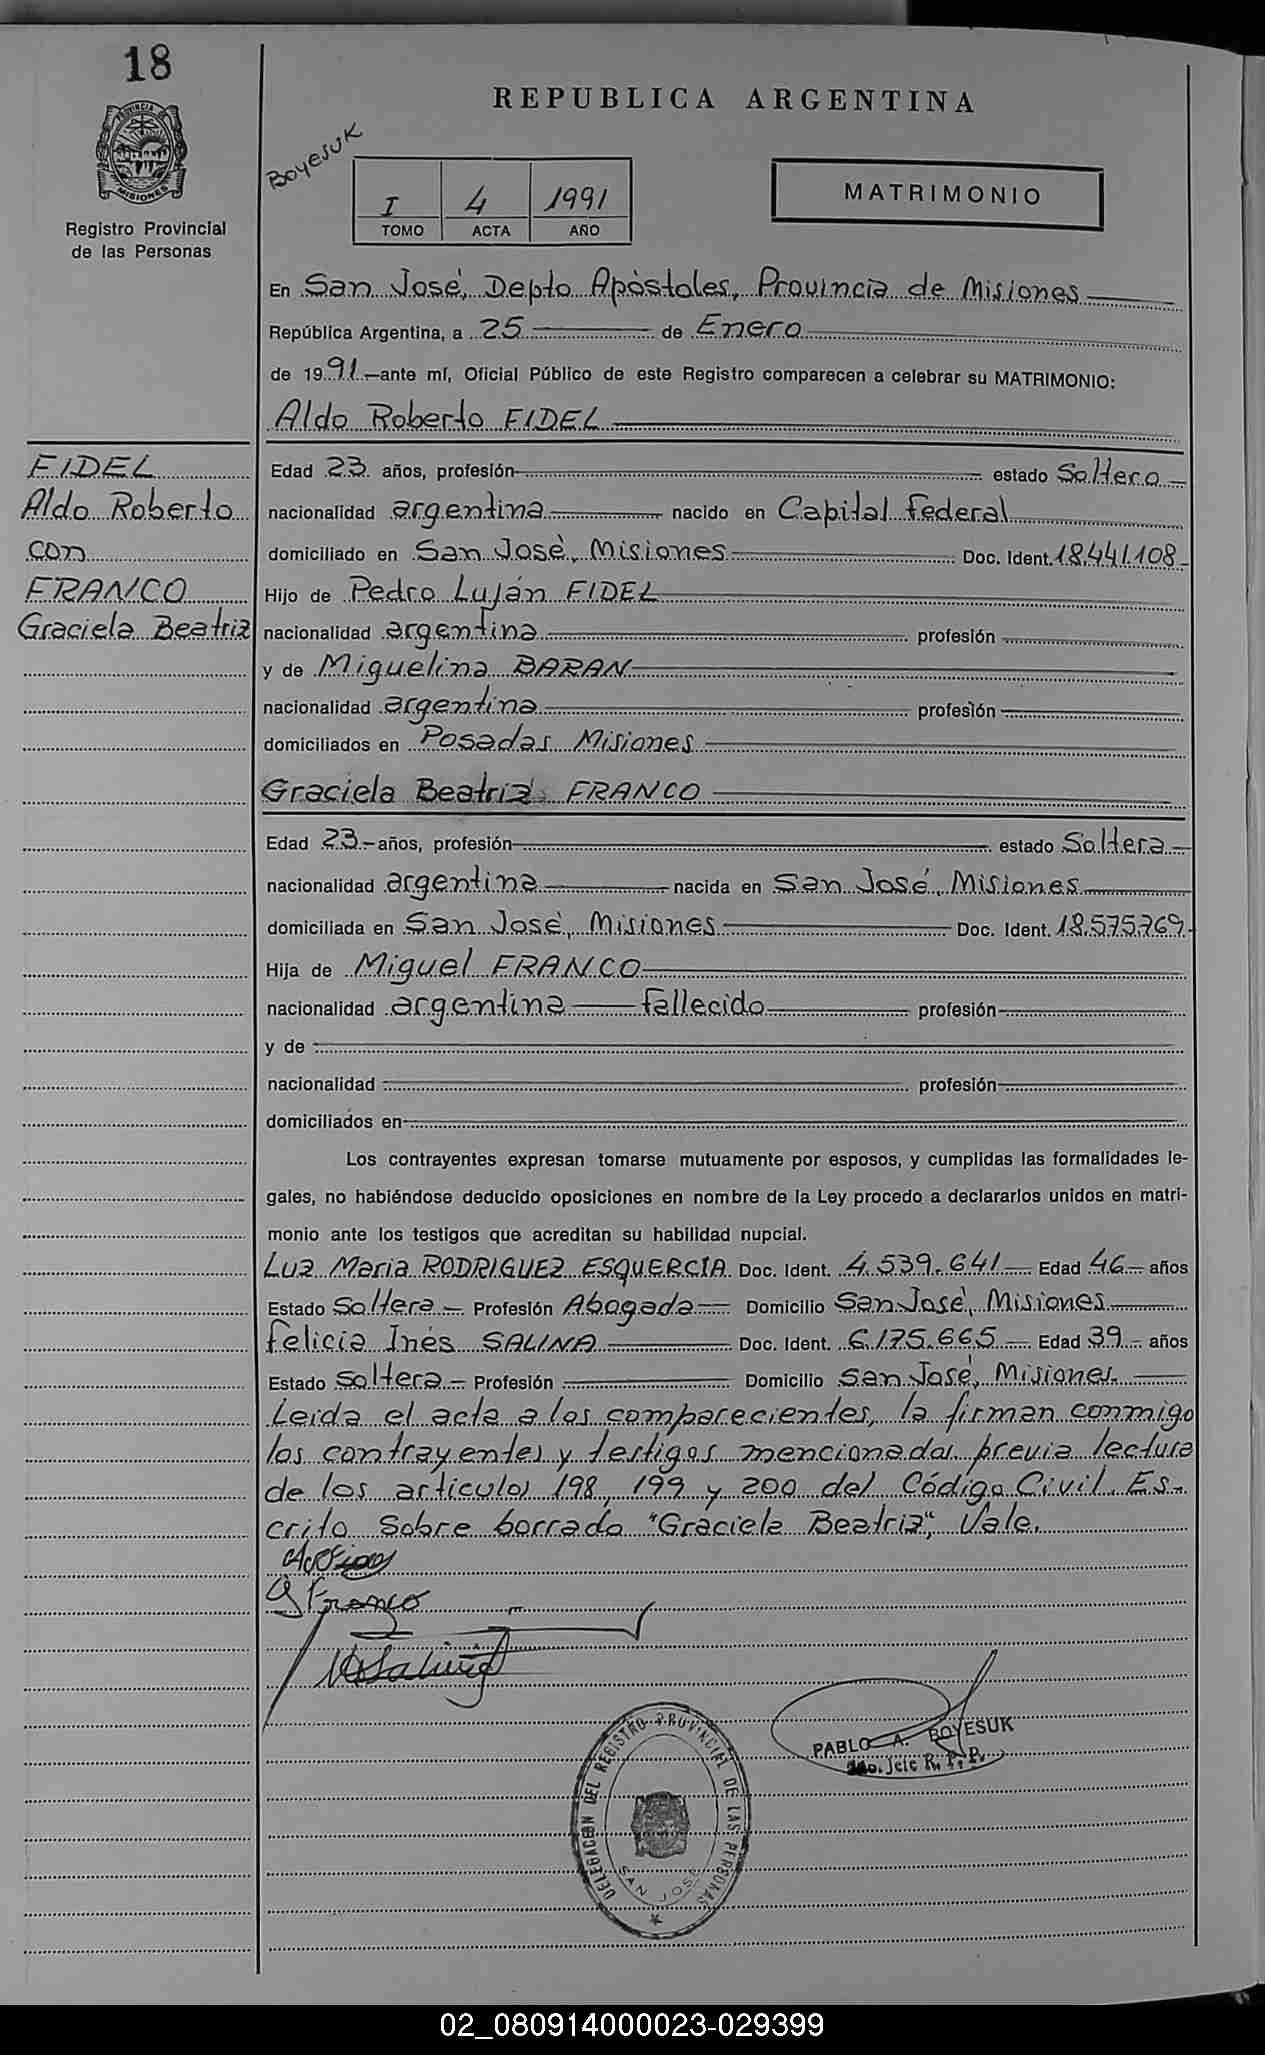 18
PROVINCIA DE
MISIONES
Registro Provincial
de las Personas
REPUBLICA ARGENTINA
Boyesuk
I 4 1991
TOMO ACTA AÑO
MATRIMONIO
En San José, Depto Apóstoles, Provincia de Misiones
República Argentina, a 25 de Enero
de 1991.—ante mí, Oficial Público de este Registro comparecen a celebrar su MATRIMONIO:
Aldo Roberto FIDEL
FIDEL
Aldo Roberto
con
FRANCO
Graciela Beatriz
Edad 23 años, profesión estado Soltero
nacionalidad argentina nacido en Capital Federal
domiciliado en San José, Misiones Doc. Ident. 18.441.108
Hijo de Pedro Luján FIDEL
nacionalidad argentina profesión
y de Miguelina BARAN
nacionalidad argentina profesión
domiciliados en Posadas Misiones
Graciela Beatriz FRANCO
Edad 23 años, profesión estado Soltera
nacionalidad argentina nacida en San José, Misiones
domiciliada en San José, Misiones Doc. Ident. 18.575.769
Hija de Miguel FRANCO
nacionalidad argentina — fallecido profesión
y de
nacionalidad profesión
domiciliados en
Los contrayentes expresan tomarse mutuamente por esposos, y cumplidas las formalidades le-
gales, no habiéndose deducido oposiciones en nombre de la Ley procedo a declararlos unidos en matri-
monio ante los testigos que acreditan su habilidad nupcial.
Luz Maria RODRIGUEZ ESQUERCIA Doc. Ident. 4.539.641 Edad 46 años
Estado Soltera Profesión Abogada Domicilio San José, Misiones
Felicia Inés SALINA Doc. Ident. 6.175.665 Edad 39 años
Estado Soltera Profesión Domicilio San José, Misiones.
Leida el acta a los comparecientes, la firman conmigo
los contrayentes y testigos mencionados previa lectura
de los articulos 198, 199 y 200 del Código Civil. Es-
crito sobre borrado "Graciela Beatriz", Vale.
G Franco
PABLO A. BOYESUK
Jefe R. P. P.
DELEGACION DEL REGISTRO PROVINCIAL DE LAS PERSONAS
SAN JOSE
02_080914000023-029399